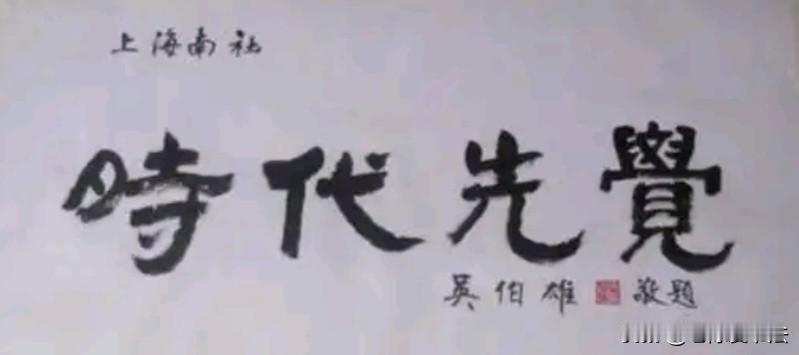 上海南社
時代先覺
吳伯雄 敬題